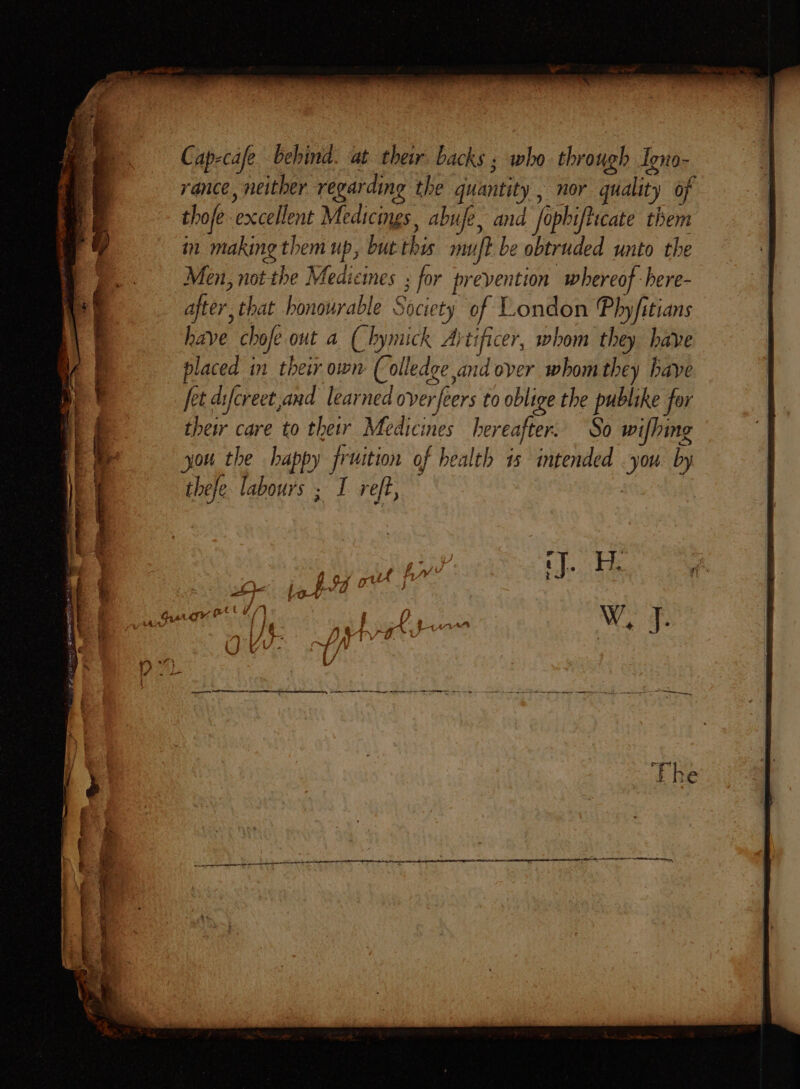 Cap-caſe behind. at their backs ; who through Igno-
rance, neither regarding the quantity , nor quality of
thoſe excellent Medicings, abuſe, and ſophiſticate them
in making them up, but this muſt be obtruded unto the
Men, not the Medicines ; for prevention whereof here-
after, that honourable Society of London Phyſitians
have choſe out a Chymick Artificer, whom they have
placed in their own Colledge, and over whom they have
ſet diſcreet, and learned overſeers to oblige the publike for
their care to their Medicines hereafter. So wiſhing
you the happy fruition of health is intended you by
theſe labours ; I reſt,
J. H.
out
W. J.
The